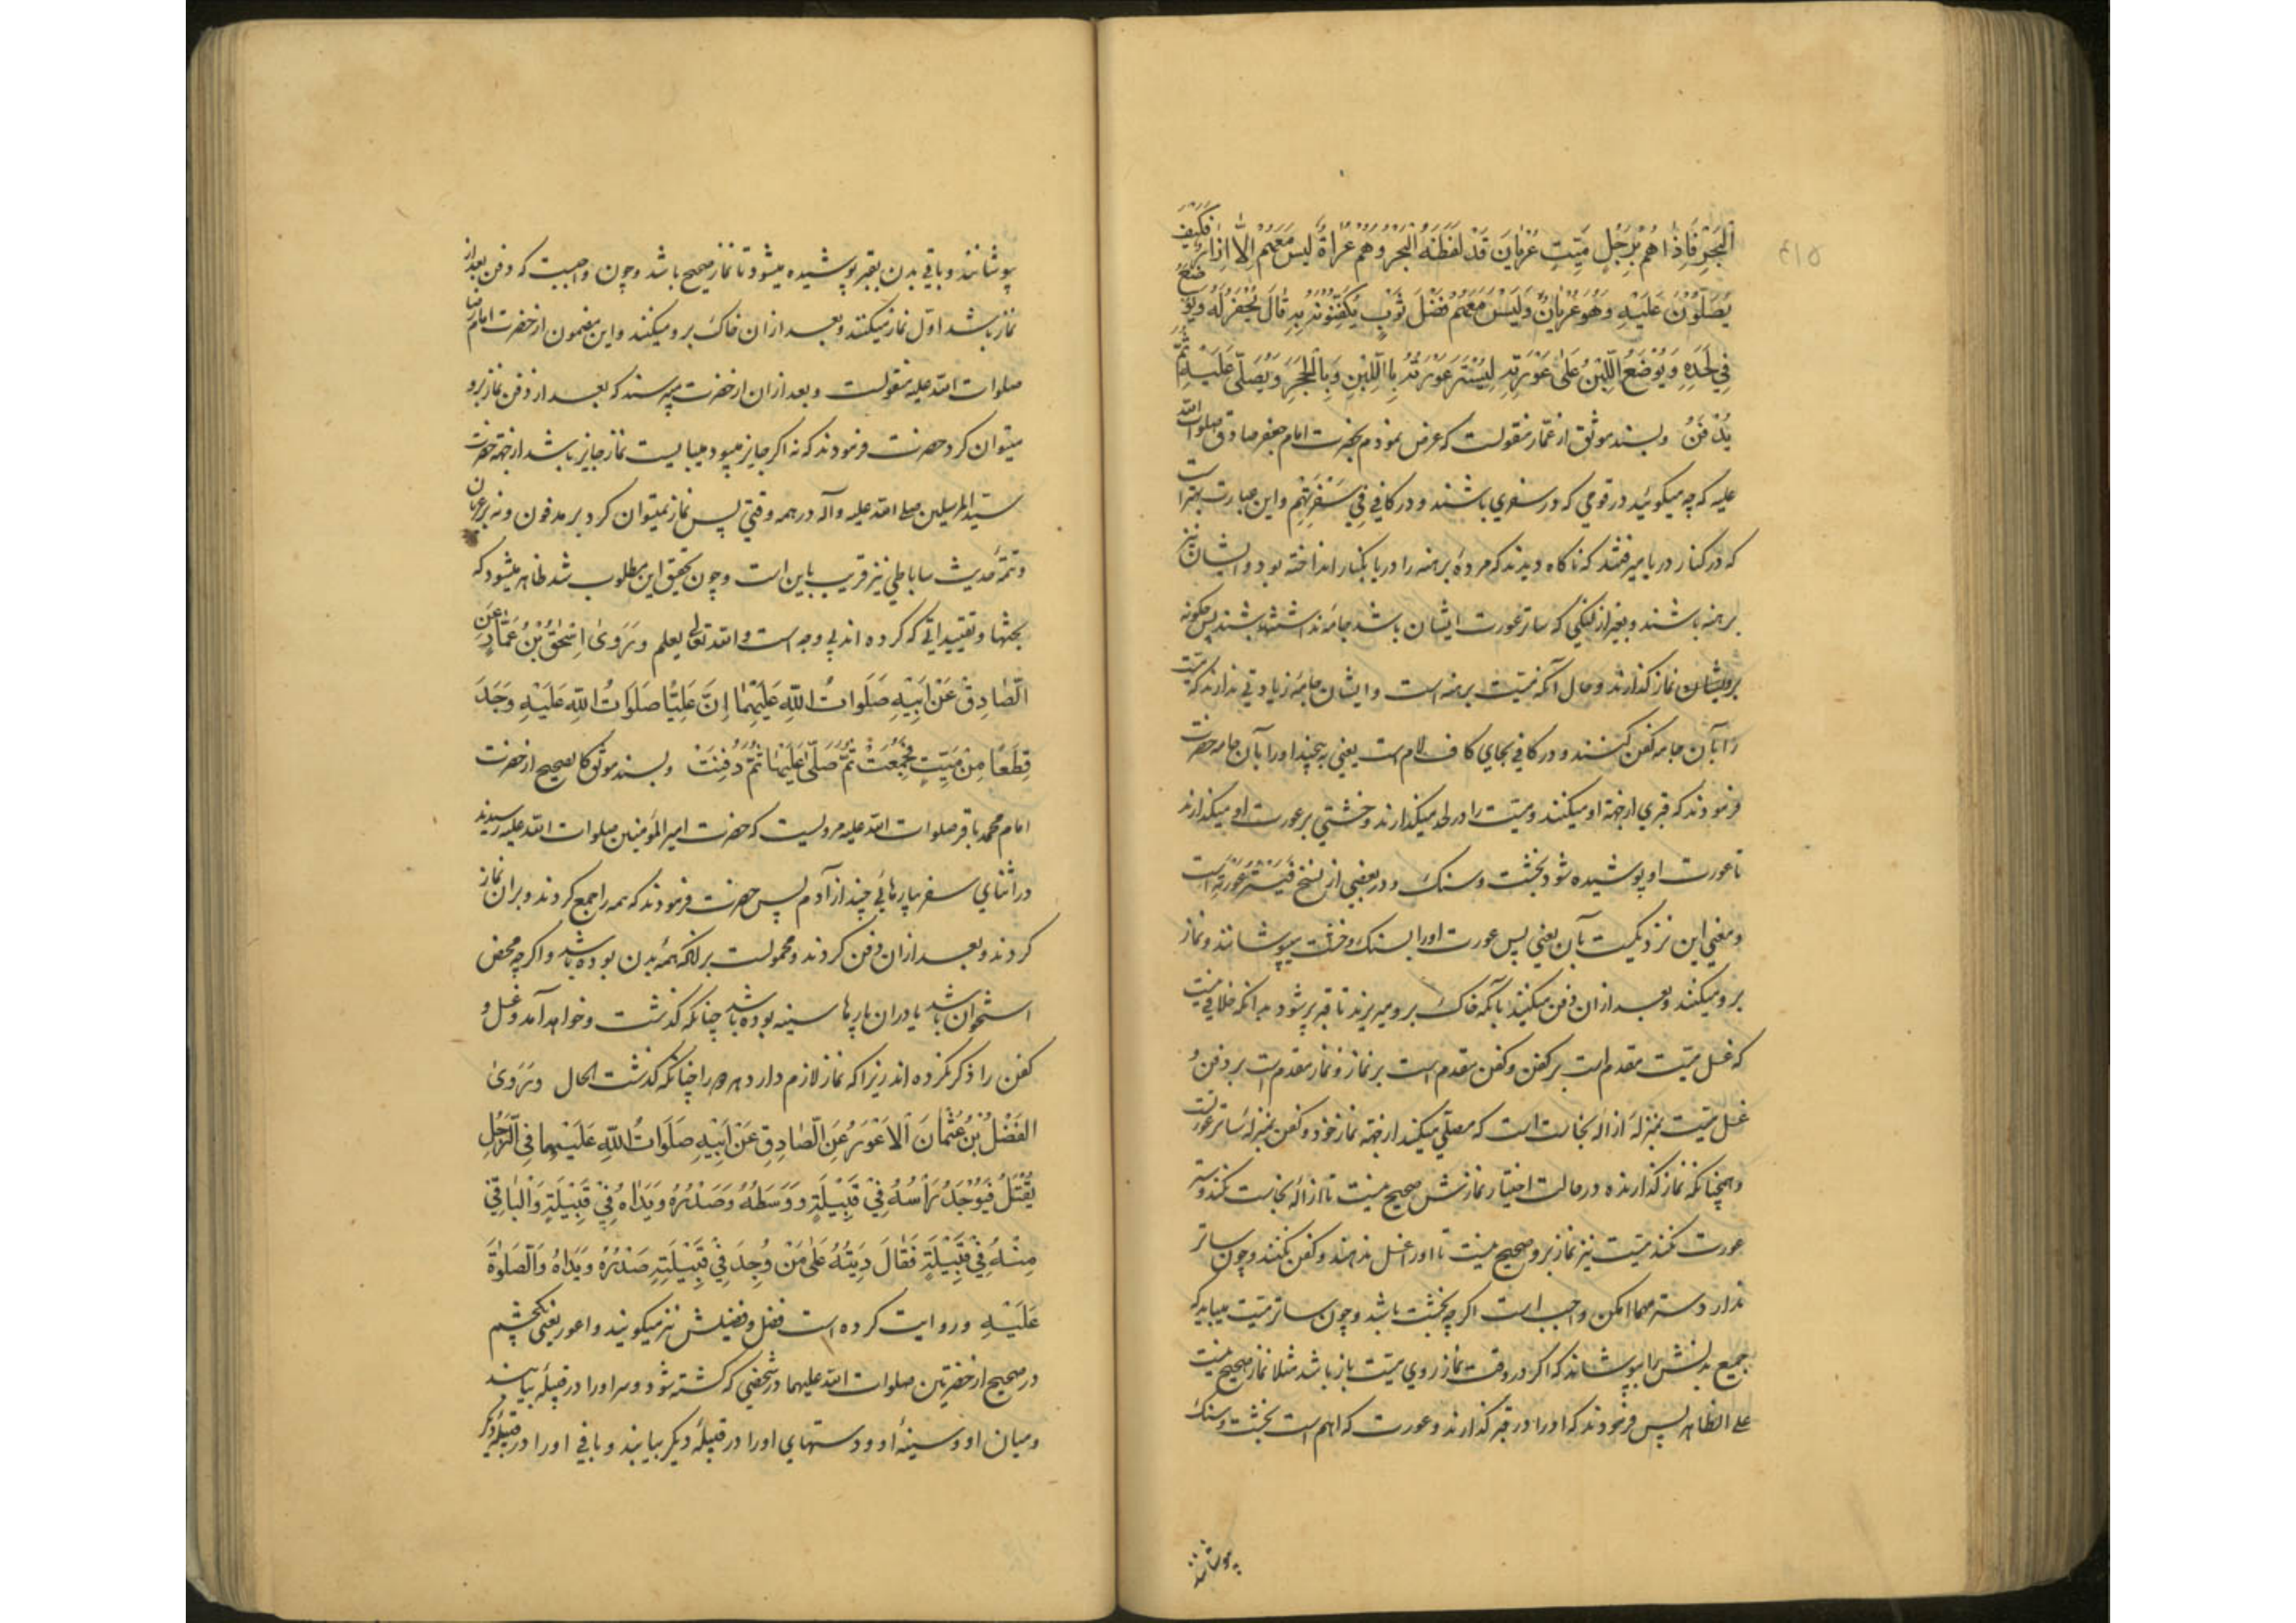 ٤١٥
الْبَحْرِ فَاِذَا هُمْ بِرَجُلٍ مَيِّتٍ عُرْيَانَ قَدْ لَفَظَهُ الْبَحْرُ وَهُمْ عُرَاةٌ لَيْسَ مَعَهُمْ اِلَّا اِزَارٌ فَكَيْفَ
يُصَلُّوْنَ عَلَيْهِ وَهُوَ عُرْيَانٌ وَلَيْسَ مَعَهُمْ فَضْلُ ثَوْبٍ يُكَفِّنُوْنَهُ بِهِ قَالَ يُحْفَرُ لَهُ وَيُوضَعُ
فِي لَحْدِهِ وَيُوْضَعُ اللَّبِنُ عَلَى عَوْرَتِهِ لِيُسْتَرَ عَوْرَتُهُ بِاللَّبِنِ وَبِالْحَجَرِ وَيُصَلَّى عَلَيْهِ ثُمَّ
يُدْفَنُ وبسند موثق از عمار منقولست که عرض نمودم بحضرت امام جعفر صادق صلوات الله
علیه که چه میکوئید در قومی که در سفری باشند و در کافی فِي سَفَرٍ لَهُمْ واین عبارت بهتر است
که در کنار دریا میرفتند که ناکاه دیدند که مردهٔ برهنه را دریا بکنار انداخته بود و ایشان نیز
برهنه باشند و بغیر از لنکی که ساتر عورت ایشان باشد جامه نداشته باشند پس چکونه
برایشان نماز کذارند و حال آنکه میّت برهنه است و ایشان جامهٔ زیادتی ندارند که میّت
را بآن جامه کفن کنند و در کافی بجای کاف لام است یعنی به پیچند اورا بآن جامه حضرت
فرمودند که قبری از جهة او میکنند و میّت را در لحد میکذارند و خشتی بر عورت او میکذارند
تا عورت او پوشیده شود بخشت و سنک و در بعضی از نسخ فَيُسْتَرُ عَوْرَتُهُ است
و معنی این نزدیکست بآن یعنی پس عورت اورا بسنک و خشت میپوشانند و نماز
برو میکنند و بعد ازان دفن میکنند بآنکه خاک برو میریزند تا قبر پر شود بدانکه خلافی نیست
که غسل میّت مقدم است بر کفن و کفن مقدم است بر نماز و نماز مقدم است بر دفن و
غسل میّت بمنزلهٔ ازالهٔ نجاست است که مصلّی میکند از جهة نماز خود و کفن بمنزلهٔ ساتر عورتست
و همچنانکه نماز کذارنده در حالت اختیار نمازش صحیح نیست تا ازالهٔ نجاست نکند و ستر
عورت نکند میّت نیز نماز برو صحیح نیست تا اورا غسل ندهند و کفن نکنند و چون ساتر
ندارد ستر مهما امکن واجب است اکرچه بخشت باشد و چون ساتر میّت میباید که
جمیع بدنش را بپوشاند که اکر در وقت نماز روی میّت باز باشد مثلا نماز صحیح نیست
علی الظاهر پس فرمودند که اورا در قبر کذارند و عورت که اهم است بخشت و سنک
پوشانند
پوشانند و باقی بدن بقبر پوشیده میشود تا نماز صحیح باشد و چون واجبست که دفن بعد از
نماز باشد اوّل نماز میکنند و بعد ازان خاک برو میکنند و این مضمون از حضرت امام رضا
صلوات الله علیه منقولست و بعد ازان از حضرت میپرسند که بعد از دفن نماز برو
میتوان کرد حضرت فرمودند که نه اکر جایز میبود میبایست نماز جایز باشد از جهة حضرت
سیّد المرسلین صلی الله علیه وآله در همه وقتی پس نماز نمیتوان کرد بر مدفون و نه بر عریان
و تتمهٔ حدیث ساباطی نیز قریب باین است و چون تحقیق این مطلوب شد ظاهر میشود که
بحثها و تقییداتی که کرده اند بی وجه است والله تعالی یعلم وَرَوَىٰ اِسْحٰقُ بْنُ عَمَّارٍ عَنِ
الصَّادِقِ عَنْ اَبِيْهِ صَلَوَاتُ اللّٰهِ عَلَيْهِمَا اِنَّ عَلِيًّا صَلَوَاتُ اللّٰهِ عَلَيْهِ وَجَدَ
قِطَعًا مِنْ مَيِّتٍ فَجُمِعَتْ ثُمَّ صَلَّى عَلَيْهَا ثُمَّ دُفِنَتْ وبسند موثق کالصحیح از حضرت
امام محمد باقر صلوات الله علیه مرویست که حضرت امیر المؤمنین صلوات الله علیه رسیدند
در اثنای سفر بپارهائی چند از آدم پس حضرت فرمودند که همه را جمع کردند و بران نماز
کردند و بعد ازان دفن کردند و محمولست برانکه همهٔ بدن بوده باشد و اکرچه محض
استخوان باشد یا دران پارها سینه بوده باشد چنانکه کذشت و خواهد آمد و غسل و
کفن را ذکر نکرده اند زیرا که نماز لازم دارد هر دو را چنانکه کذشت الحال وَرَوَىٰ
الْفَضْلُ بْنُ عُثْمَانَ الْاَعْوَرُ عَنِ الصَّادِقِ عَنْ اَبِيْهِ صَلَوَاتُ اللّٰهِ عَلَيْهِمَا فِي الرَّجُلِ
يُقْتَلُ فَيُوْجَدُ رَاْسُهُ فِيْ قَبِيْلَةٍ وَوَسَطُهُ وَصَدْرُهُ وَيَدَاهُ فِيْ قَبِيْلَةٍ وَالْبَاقِيْ
مِنْهُ فِيْ قَبِيْلَةٍ فَقَالَ دِيَتُهُ عَلَى مَنْ وُجِدَ فِيْ قَبِيْلَتِهِ صَدْرُهُ وَيَدَاهُ وَالصَّلٰوةُ
عَلَيْهِ وروایت کرده است فضل و فضیلش نیز میکویند و اعور یعنی یکچشم
در صحیح از حضرتین صلوات الله علیهما در شخصی که کشته شود و سر اورا در قبیلهٔ بیابند
و میان او و سینهٔ او و دستهای اورا در قبیلهٔ دیکر بیابند و باقی اورا در قبیلهٔ دیکر